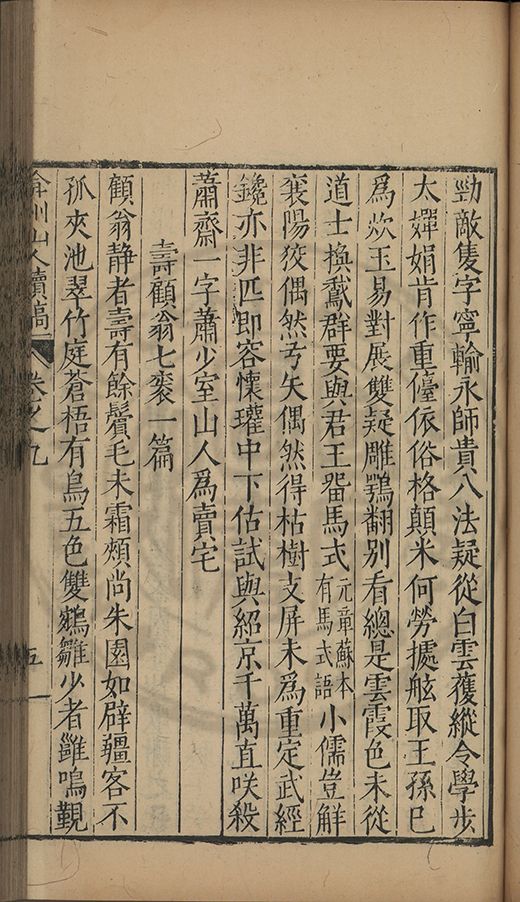 勁敵隻字寧輸永師貴八法疑從白雲蒦縱令學步
太嬋娟肯作重儓依俗格顛米何勞據舷取王孫巳
爲炊玉易對展雙疑雕鶚翻別看總是雲霞色未從
道士換鵞群要與君王畱馬式元章蘇本有馬式語小儒豈解
襄陽狡偶然亏矢偶然得枯樹支屏未爲重定武經
鑱亦非匹即容懷瓘中下估試與紹京千萬直咲殺
蕭齋一字蕭少室山人爲賣宅
壽顧翁七袠一篇
顧翁静者壽有餘鬢毛未霜頰尚朱園如辟疆客不
孤夾池翠竹庭蒼梧有鳥五色雙鵷雛少者雝鳴覲
弇州山人續稿 卷之九 五